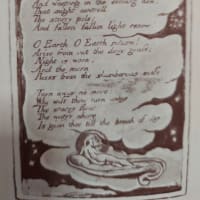 And weeping in the evening dew:
That might controll
The starry pole;
And fallen fallen light renew!
O Earth O Earth return!
Arise from out the dewy grass;
Night is worn,
And the morn
Rises from the slumberous mass.
Turn away no more:
Why wilt thou turn away
The starry floor
The watry shore
Is giv'n thee till the break of day.